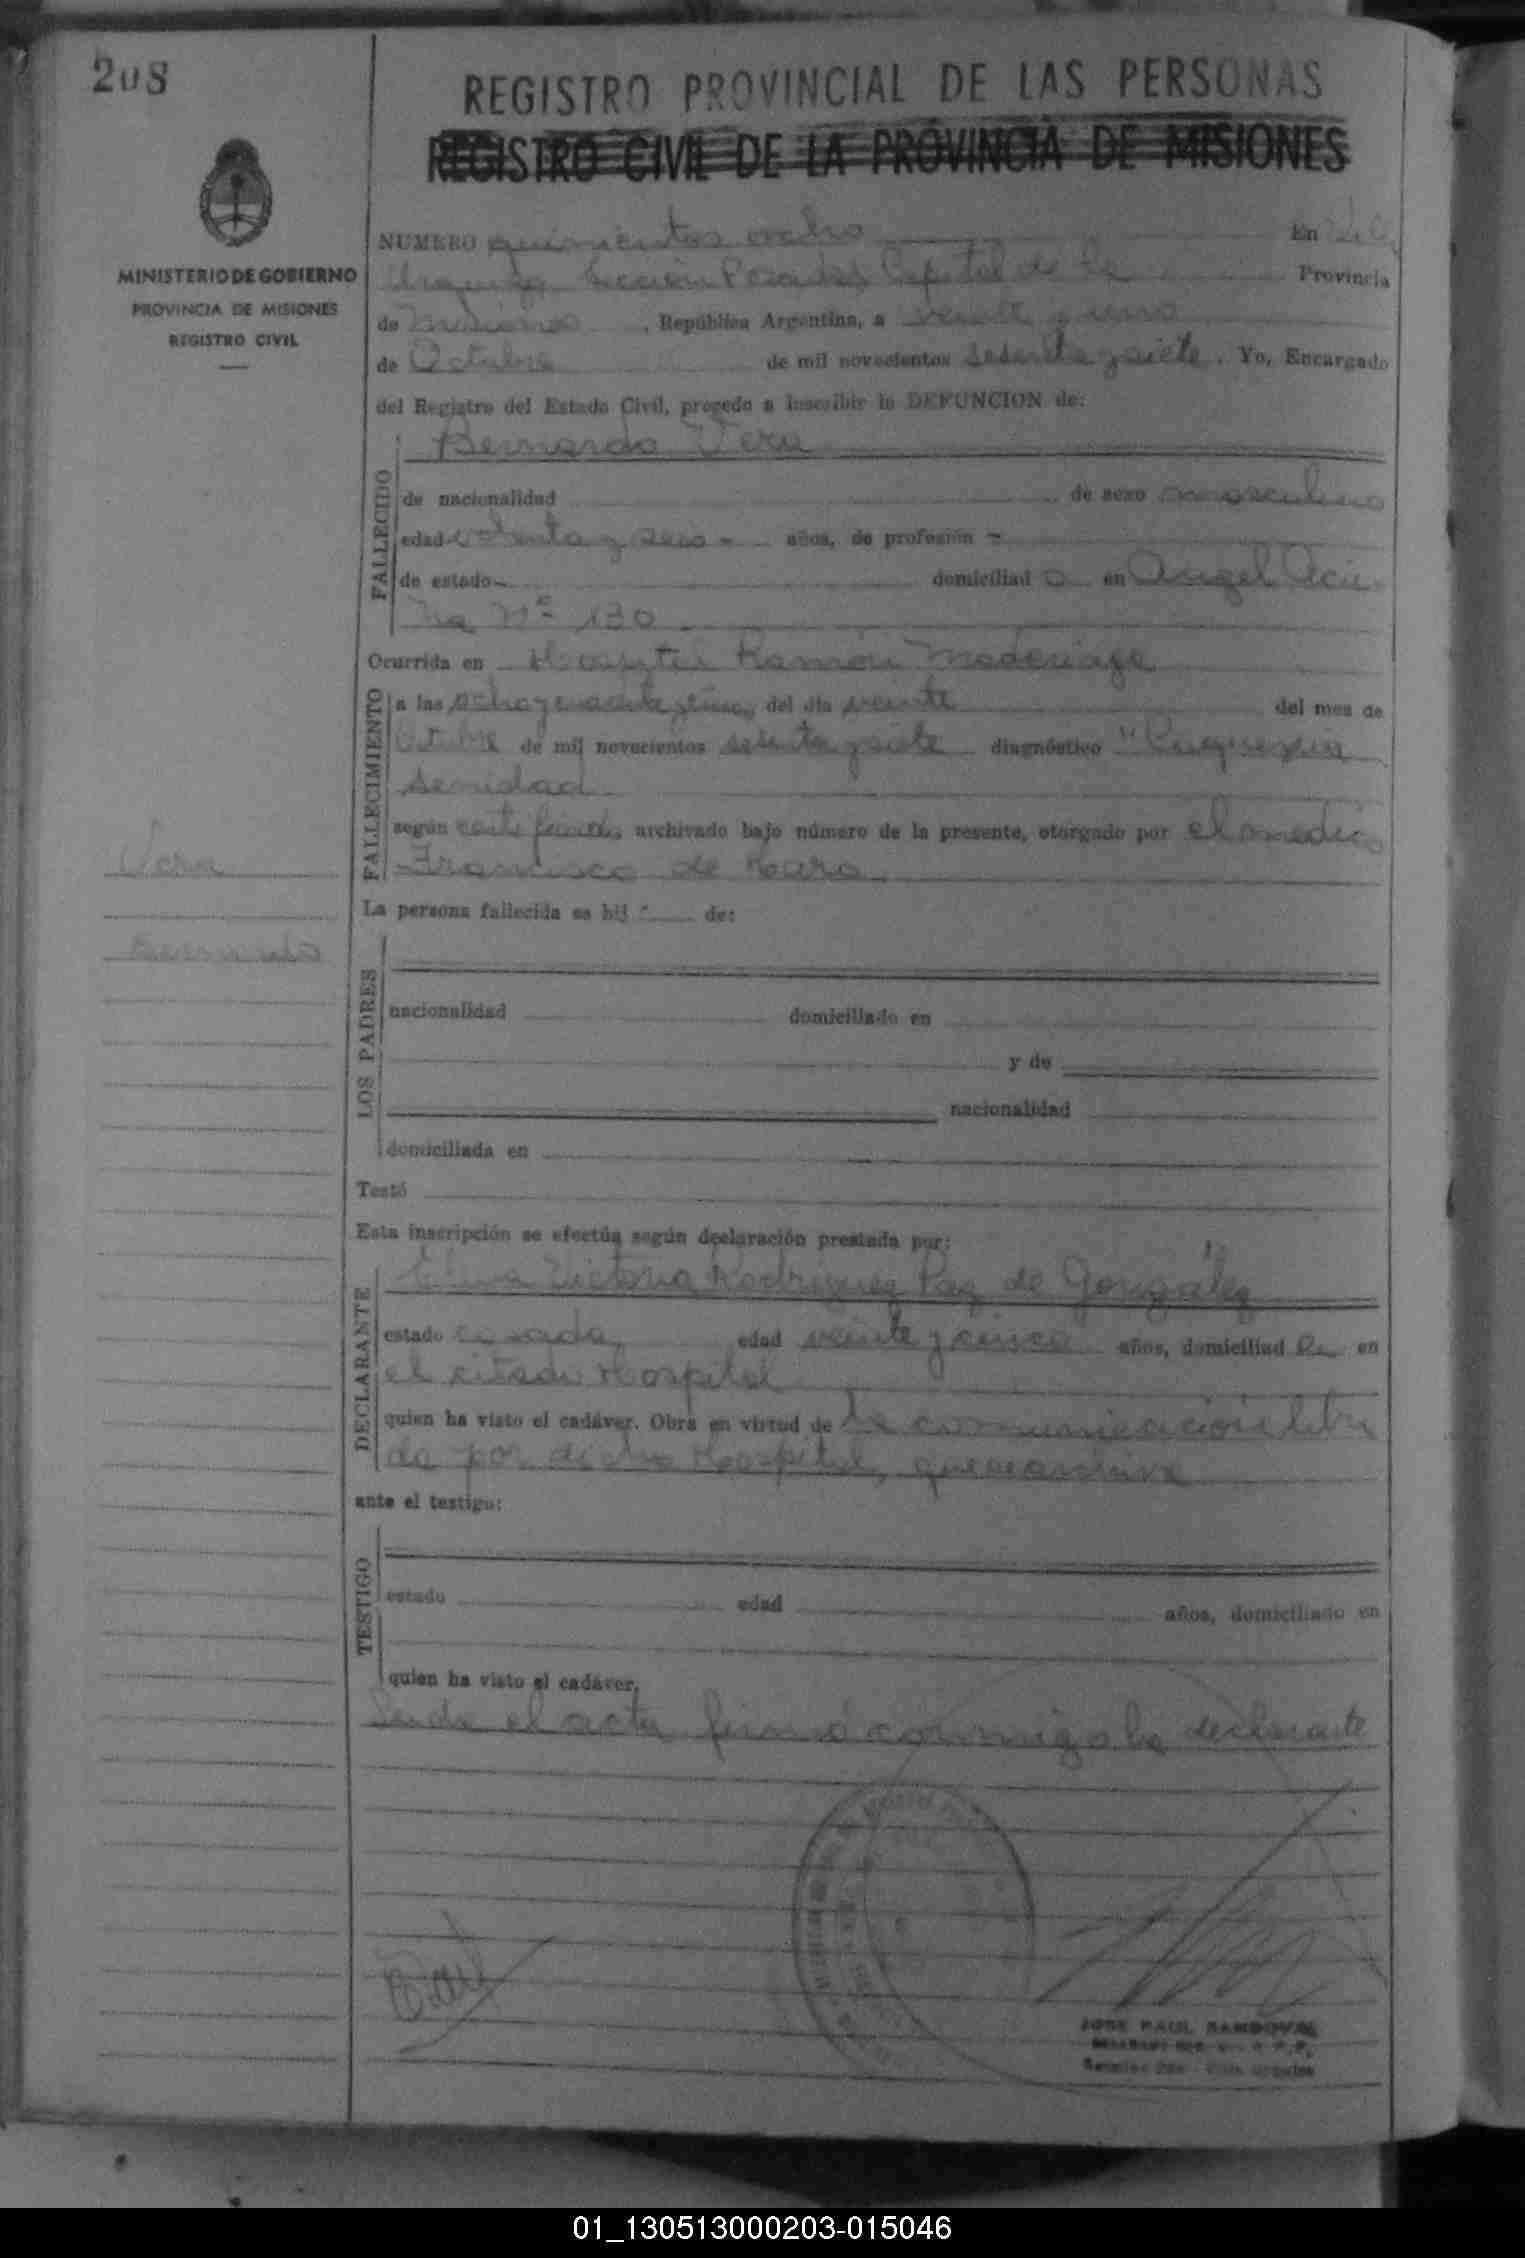 208
REGISTRO PROVINCIAL DE LAS PERSONAS
REGISTRO CIVIL DE LA PROVINCIA DE MISIONES
MINISTERIO DE GOBIERNO
PROVINCIA DE MISIONES
REGISTRO CIVIL
NUMERO quinientos ocho En Villa
Urquiza Sección Posadas Capital de la Provincia
de Misiones, República Argentina, a veinte y uno
de Octubre de mil novecientos sesenta y siete. Yo, Encargado
del Registro del Estado Civil, procedo a inscribir la DEFUNCION de:
Bernardo Vera
FALLECIDO
de nacionalidad de sexo masculino
edad y seis - años, de profesión -
de estado - domiciliad o en Angel Acu
ña Nº 130
Ocurrida en Hospital Ramón Madariaga
FALLECIMIENTO
a las ocho y del día veinte del mes de
Octubre de mil novecientos sesenta y siete diagnóstico "
senidad
según certificado archivado bajo número de la presente, otorgado por el medico
Francisco de Haro
Vera
Bernardo
La persona fallecida es hij de:
LOS PADRES
nacionalidad domiciliado en
y de
nacionalidad
domiciliada en
Testó
Esta inscripción se efectúa según declaración prestada por:
DECLARANTE
Elma Victoria Rodriguez Paz de González
estado casada, edad veinte y cinco años, domiciliad a en
el citado Hospital
quien ha visto el cadáver. Obra en virtud de la comunicación libra
da por dicho Hospital, que se archiva
ante el testigo:
TESTIGO
estado edad años, domiciliado en
quien ha visto el cadáver.
Leida el acta firmó conmigo la declarante
JOSE RAUL SANDOVAL
01_130513000203-015046